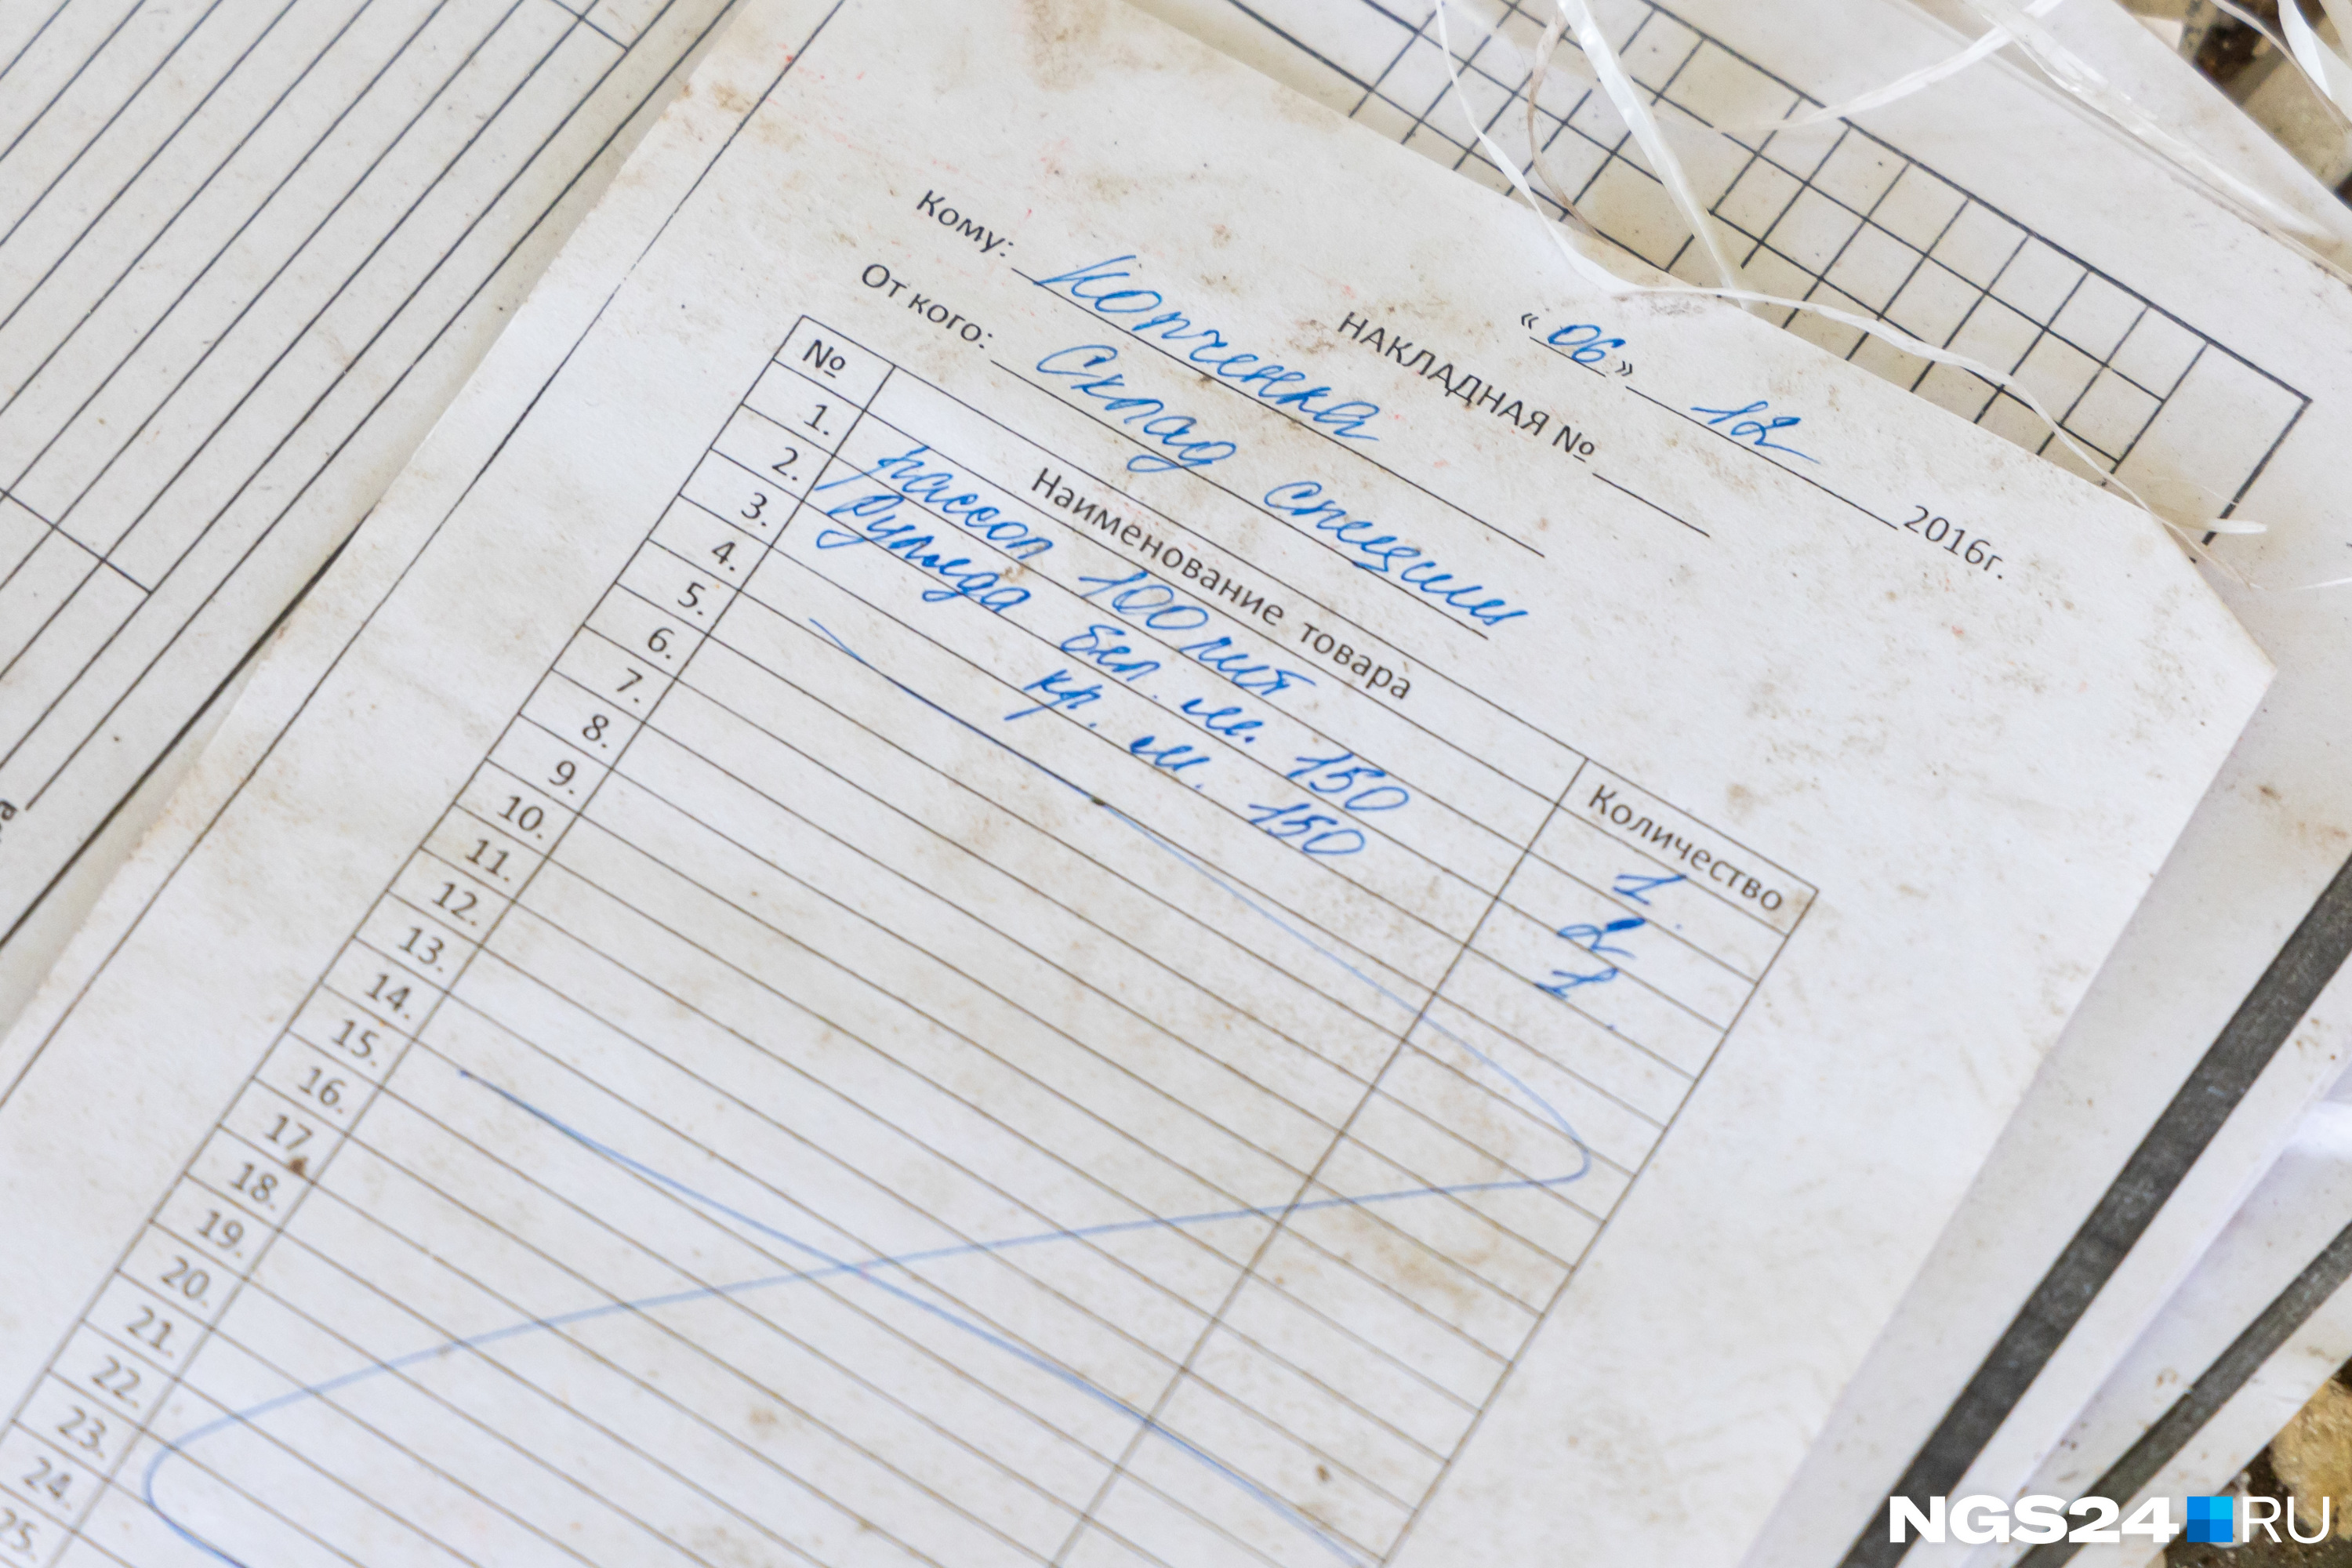 « 06 » 12 2016г.
НАКЛАДНАЯ №
Кому: Копченка
От кого: Склад специи
№ Наименование товара Количество
1. рассол 100 1
2. Рульда бел. м. 150 2
3. кр. м. 150 1
4.
5.
6.
7.
8.
9.
10.
11.
12.
13.
14.
15.
16.
17.
18.
19.
20.
21.
22.
23.
24.
25.
NGS24 RU